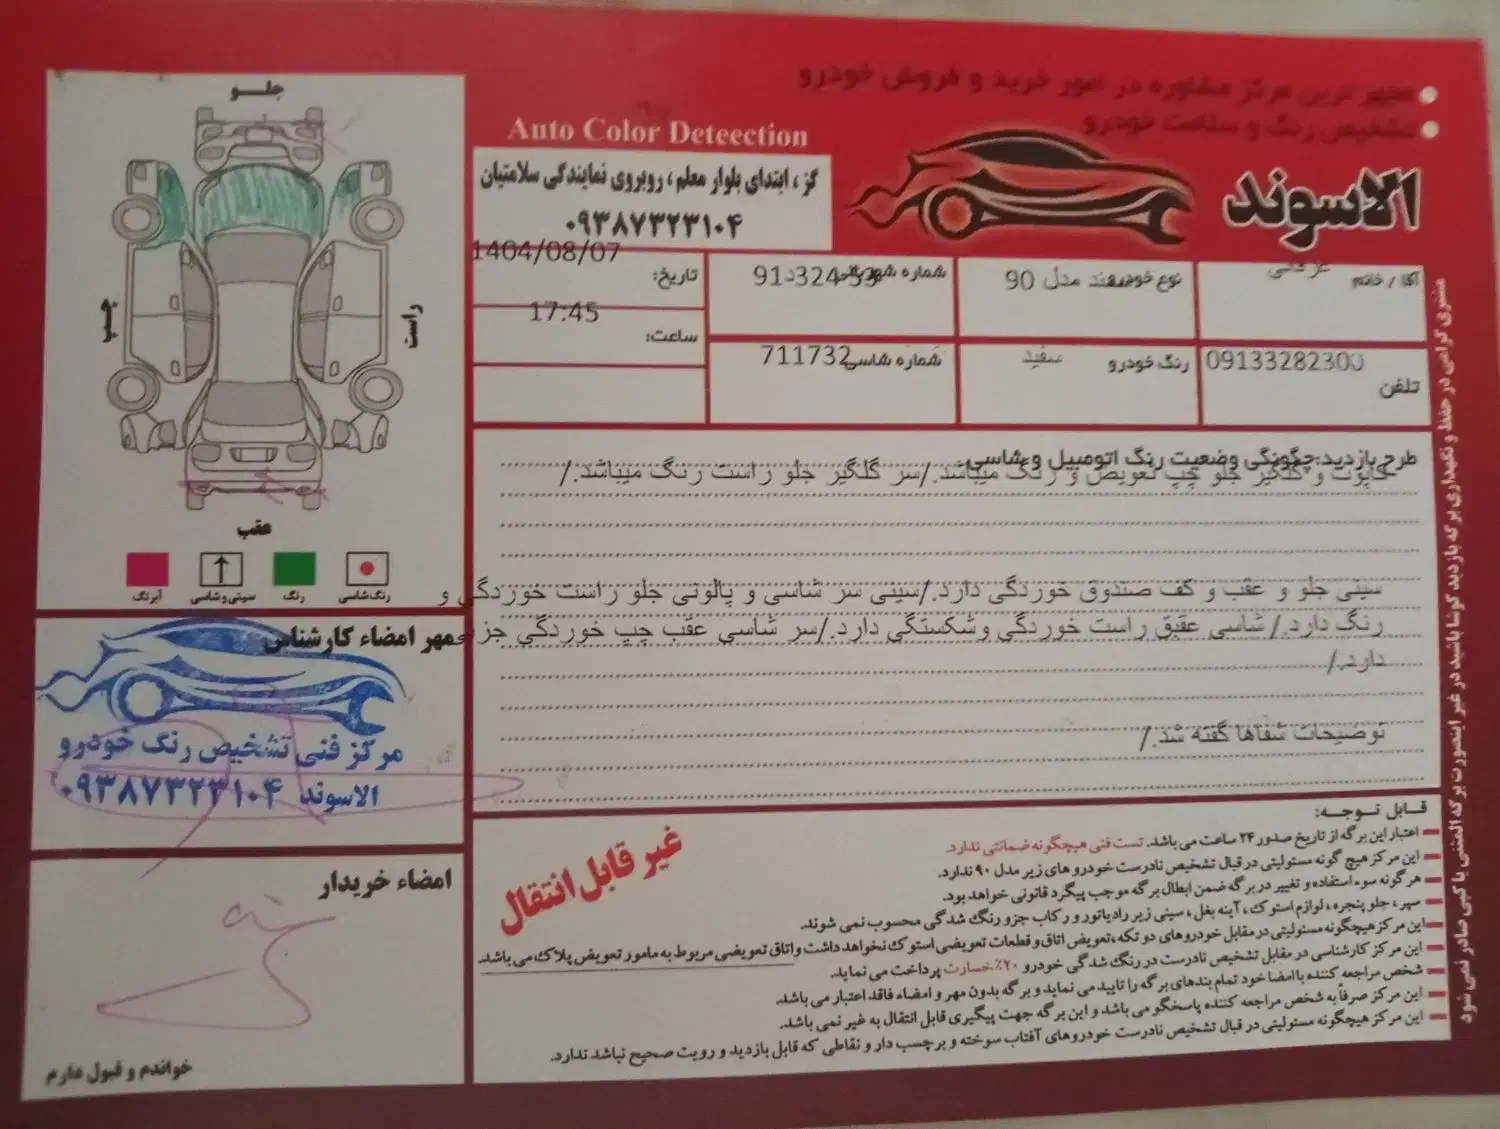 مجهز ترین مرکز مشاوره در امور خرید و فروش خودرو
تشخیص رنگ و سلامت خودرو
الاسوند
Auto Color Deteection
گز ، ابتدای بلوار معلم ، روبروی نمایندگی سلامتیان
۰۹۳۸۷۳۲۳۱۰۴
آقا / خانم
نوع خودرو سمند مدل 90
شماره شهربانی 91د324-53
تاریخ: 1404/08/07
تلفن 09133282300
رنگ خودرو سفید
شماره شاسی 711732
ساعت: 17:45
جلو
چپ
راست
عقب
رنگ شاسی
رنگ
سینی و شاسی
آبرنگ
طرح بازدید: چگونگی وضعیت رنگ اتومبیل و شاسی
کاپوت و گلگیر جلو چپ تعویض و رنگ میباشد./سر گلگیر جلو راست رنگ میباشد./
سینی جلو و عقب و کف صندوق خوردگی دارد./سینی سر شاسی و پالونی جلو راست خوردگی و
رنگ دارد./شاسی عقبق راست خوردگی وشکستگی دارد./سر شاسی عقب چپ خوردگی جزیی
دارد./
توضیحات شفاها گفته شد./
مهر امضاء کارشناس
مرکز فنی تشخیص رنگ خودرو
الاسوند ۰۹۳۸۷۳۲۳۱۰۴
امضاء خریدار
خواندم و قبول دارم
غیر قابل انتقال
قابل توجه:
اعتبار این برگه از تاریخ صدور ۲۴ ساعت می باشد. تست فنی هیچگونه ضمانتی ندارد.
این مرکز هیچ گونه مسئولیتی در قبال تشخیص نادرست خودرو های زیر مدل ۹۰ ندارد.
هر گونه سوء استفاده و تغییر در برگه ضمن ابطال برگه موجب پیگرد قانونی خواهد بود.
سپر ، جلو پنجره ، لوازم استوک ، آینه بغل ، سینی زیر رادیاتور و رکاب جزو رنگ شدگی محسوب نمی شوند.
این مرکز هیچگونه مسئولیتی در مقابل خودروهای دو تکه، تعویض اتاق و قطعات تعویضی استوک نخواهد داشت و اتاق تعویضی مربوط به مامور تعویض پلاک می باشد.
این مرکز کارشناسی در مقابل تشخیص نادرست در رنگ شدگی خودرو ۲۰٪ خسارت پرداخت می نماید.
شخص مراجعه کننده با امضا خود تمام بندهای برگه را تایید می نماید و برگه بدون مهر و امضاء فاقد اعتبار می باشد.
این مرکز صرفاً به شخص مراجعه کننده پاسخگو می باشد و این برگه جهت پیگیری قابل انتقال به غیر نمی باشد.
این مرکز هیچگونه مسئولیتی در قبال تشخیص نادرست خودروهای آفتاب سوخته و برچسب دار و نقاطی که قابل بازدید و رویت صحیح نباشد ندارد.
مشتری گرامی در حفظ و نگهداری برگه بازدید کوشا باشید در غیر اینصورت برگه المثنی یا کپی صادر نمی شود